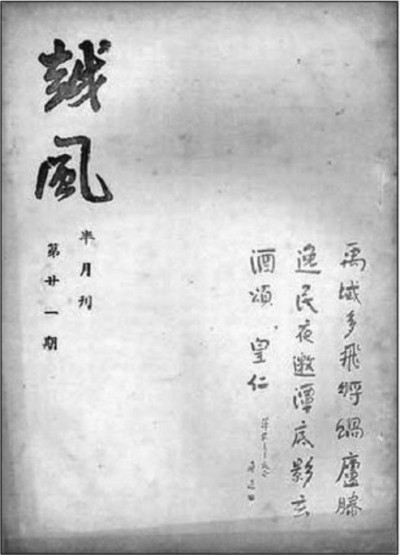 越風
半月刊
第廿一期
禹域多飛將蝸廬賸
逸民夜邀潭底影玄
酒頌 皇仁